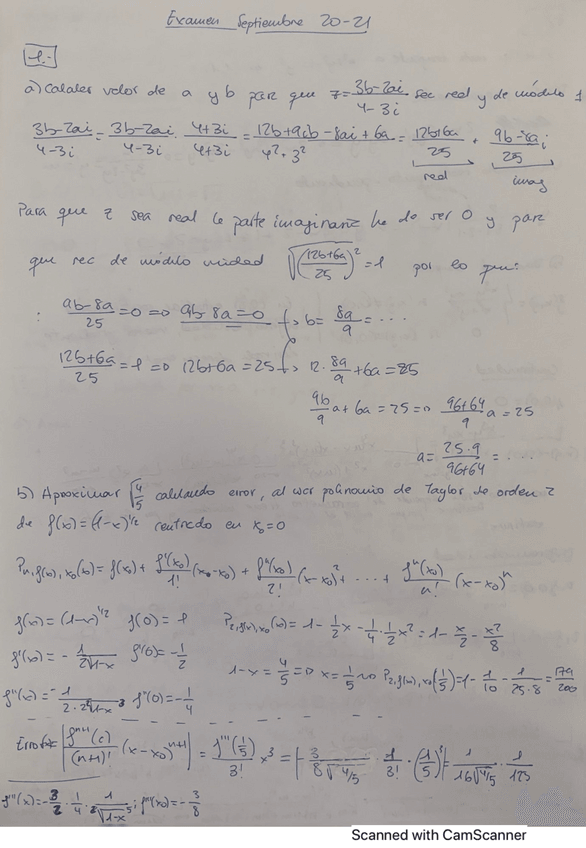 Examen Septiembre 20-21
1.-
a) Calcular valor de a y b para que z = (3b-2ai)/(4-3i) sea real y de módulo 1
(3b-2ai)/(4-3i) = (3b-2ai)/(4-3i) · (4+3i)/(4+3i) = (12b+9ib-8ai+6a)/(4²+3²) = (12b+6a)/25 + (9b-8a)/25 i
real imag
Para que z sea real la parte imaginaria ha de ser 0 y para
que sea de módulo unidad √((12b+6a)/25)² = 1 por lo que:
: (9b-8a)/25 = 0 => 9b-8a=0 b = 8a/9 = ...
(12b+6a)/25 = 1 => 12b+6a = 25 12·8a/9 + 6a = 25
96/9 a + 6a = 25 => (96+64)/9 a = 25
a = (25·9)/(96+64) = ...
b) Aproximar √(4/5) calculando error, al usar polinomio de Taylor de orden 2
de f(x) = (1-x)^1/2 centrado en x₀=0
Pn,f(x),x₀(x) = f(x) + f'(x₀)/1! (x-x₀) + f''(x₀)/2! (x-x₀)² + ... + fⁿ(x₀)/n! (x-x₀)ⁿ
f(x) = (1-x)^1/2 f(0) = 1 P2,f(x),x₀(x) = 1 - 1/2 x - 1/4 · 1/2 x² = 1 - x/2 - x²/8
f'(x) = - 1/(2√(1-x)) f'(0) = - 1/2
1-x = 4/5 => x = 1/5 P2,f(x),x₀(1/5) = 1 - 1/10 - 1/(25·8) = 179/200
f''(x) = -1/(2·2√(1-x)³) f''(0) = - 1/4
Error = |fⁿ⁺¹(c)/(n+1)! (x-x₀)ⁿ⁺¹| = f'''(1/5)/3! x³ = |- 3/(8√(4/5)) · 1/3! · (1/5)³| = 1/(16√(4/5)) · 1/125
f'''(x) = - 3/2 · 1/4 · 1/√(1-x)⁵ ; f'''(x₀) = - 3/8
Scanned with CamScanner